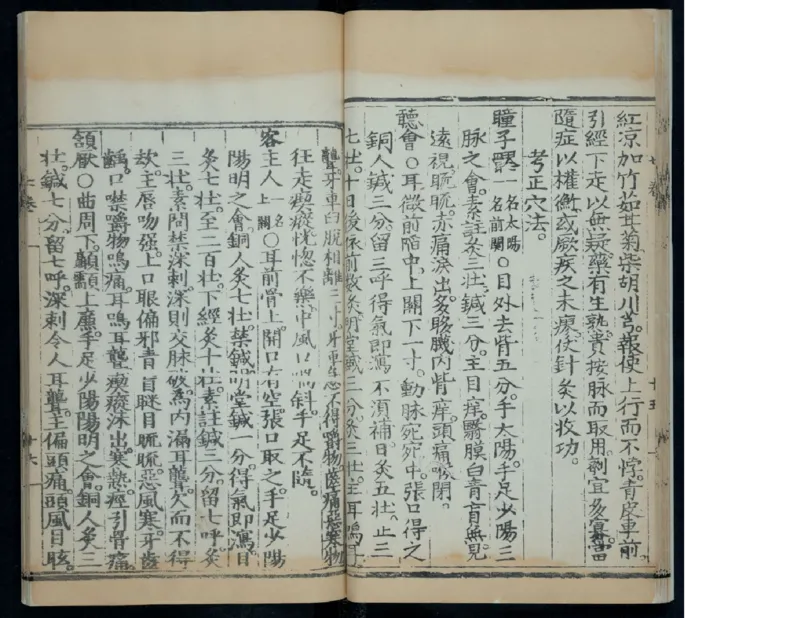 紅凉加竹茹甘菊柴胡川芎。報使上行而不悖。青皮車前
引經下走以無疑藥有生熟。貴按脉而取用。劑宜多寡。當
隨症以權衡。或厥疾之未瘳。仗針灸以收功。
考正穴法。
瞳子髎 一名太陽 一名前關 〇目外去眥五分。手太陽手足少陽三
脉之會。素註灸三壯。鍼三分。主目痒。翳膜白青盲無見
遠視𥆨𥆨。赤痛淚出。多眵䁾内眥痒。頭痛喉閉。
聽會〇耳微前陷中。上關下一寸。動脉宛宛中。張口得之
銅人鍼三分。留三呼得氣即瀉不須補日灸五壯。止三
七壯。十日後依前數灸明堂鍼三分。灸三壯。主耳鳴耳
聾。牙車臼脱相離三寸牙車急不得嚼物齒痛惡寒物
狂走瘈瘲恍惚不樂中風口喎斜。手足不隨。
客主人 一名上關 〇耳前骨上。開口有空張口取之手足少陽
陽明之會銅人灸七壯。禁鍼明堂鍼一分。得氣即瀉日
灸七壯。至二百壯。下經灸十壯素註鍼三分。留七呼灸
三壯。素問禁深刺。深則交脉破為内漏耳聾。欠而不得
欬。主唇吻强。上口眼偏邪青盲瞇目𥆨𥆨。惡風寒。牙齒
齲。口噤嚼物鳴痛。耳鳴耳聾瘈瘲沫出。寒熱。痙引骨痛。
頷厭〇曲周下。顳顬上廉。手足少陽陽明之會。銅人灸三
壯。鍼七分。留七呼。深刺令人耳聾。主偏頭痛。頭風目眩。